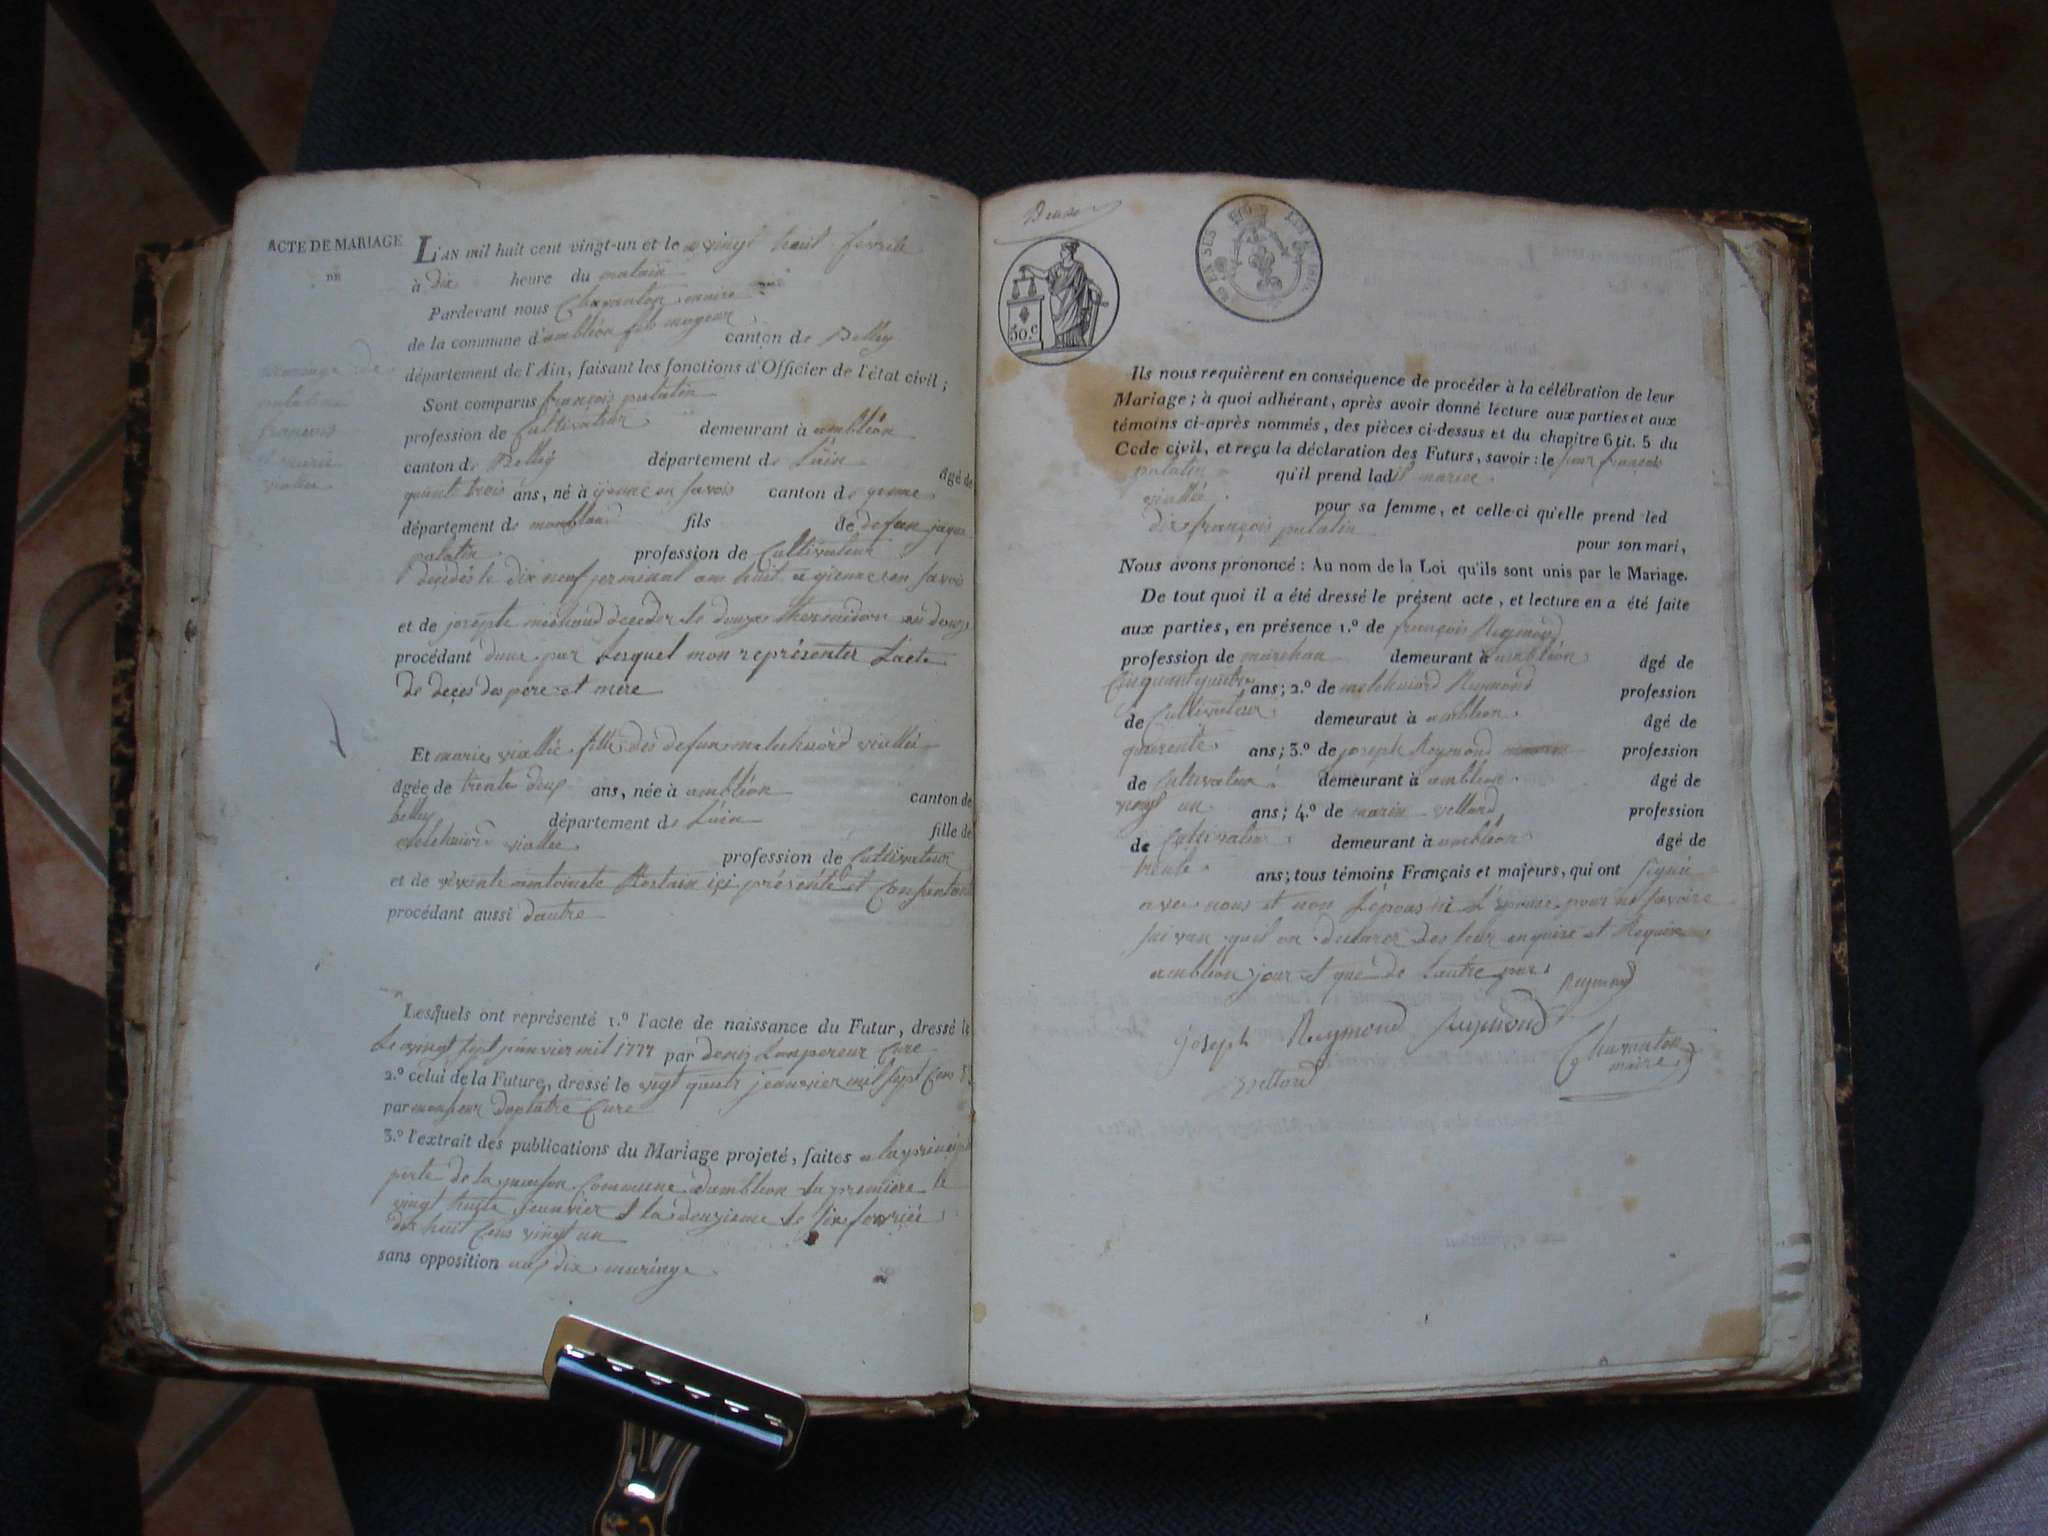 ACTE DE MARIAGE
DE
L'AN mil huit cent vingt-un et le vingt huit fevrié
à dix heure du matain
Pardevant nous Charanton maire
de la commune d'ambléon canton de Belley
département de l'Ain, faisant les fonctions d'Officier de l'état civil;
Sont comparus françois putatin
profession de Cultivateur demeurant à amblèon
canton de Belley département de Lain âgé de
quante trois ans, né à yenne en Savois canton de yenne
département de monblanc fils de defun jaque
putatin profession de Cultivateur
décédés le dix neuf jerminal ans huit a yienne en Savois
et de josephte décéder le douze thermidor an douze
procédant lesquel mon représenter Lacte
de deçes des pere et mere
mariage de
putatin
francois
& marie
viallée
Et marie viallié fille des defun melchuiord viallée
âgée de trente deux ans, née à amblèon canton de
belley département de Lain fille de
Melchuiord viallée profession de Cultivateur
et de antoinete içi présénte et Consentant
procédant aussi dautre
Lesquels ont représenté 1.º l'acte de naissance du Futur, dressé le
le vingt sept janvier mil 1777 par deniz Lanpereur Cure
2.º celui de la Future, dressé le vigt quatr jeanvier mil sept Cens
par monsieur Duplatre Cure
3.º l'extrait des publications du Mariage projeté, faites a la principale
porte de la maison Commune dambleon la premiere le
vingt huite jeanvier & la deuzieme le six fevriéé
dix huit Cens vingt un
sans opposition aux dix mariage
Deuxe
50.c
Ils nous requièrent en conséquence de procéder à la célébration de leur
Mariage; à quoi adhérant, après avoir donné lecture aux parties et aux
témoins ci-après nommés, des pièces ci-dessus et du chapitre 6 tit. 5 du
Code civil, et reçu la déclaration des Futurs, savoir: le françois
putatin qu'il prend lad marie
viallée pour sa femme, et celle-ci qu'elle prend led
dix françois putatin pour son mari,
Nous avons prononcé: Au nom de la Loi qu'ils sont unis par le Mariage.
De tout quoi il a été dressé le présent acte, et lecture en a été faite
aux parties, en présence 1.º de françois Reymond
profession de marchan demeurant à amblèon âgé de
Cinquant quatre ans; 2.º de melchuiord Reymond profession
de Cultivateur demeurant à amblèon âgé de
quarente ans; 3.º de joseph Reymond profession
de Cultivateur demeurant à amblèon âgé de
vingt un ans; 4.º de marin vettard profession
de Cultivateur demeurant à amblèon âgé de
trente ans; tous témoins Français et majeurs, qui ont signé
avec nous et non L'epous ni L'épouse pour ne savoire
quil on declarez des leur enquise et Requise
amblèon jour et que de Lautre par
Reymond
joseph Reymond Reymond
vettard
Charanton
maire